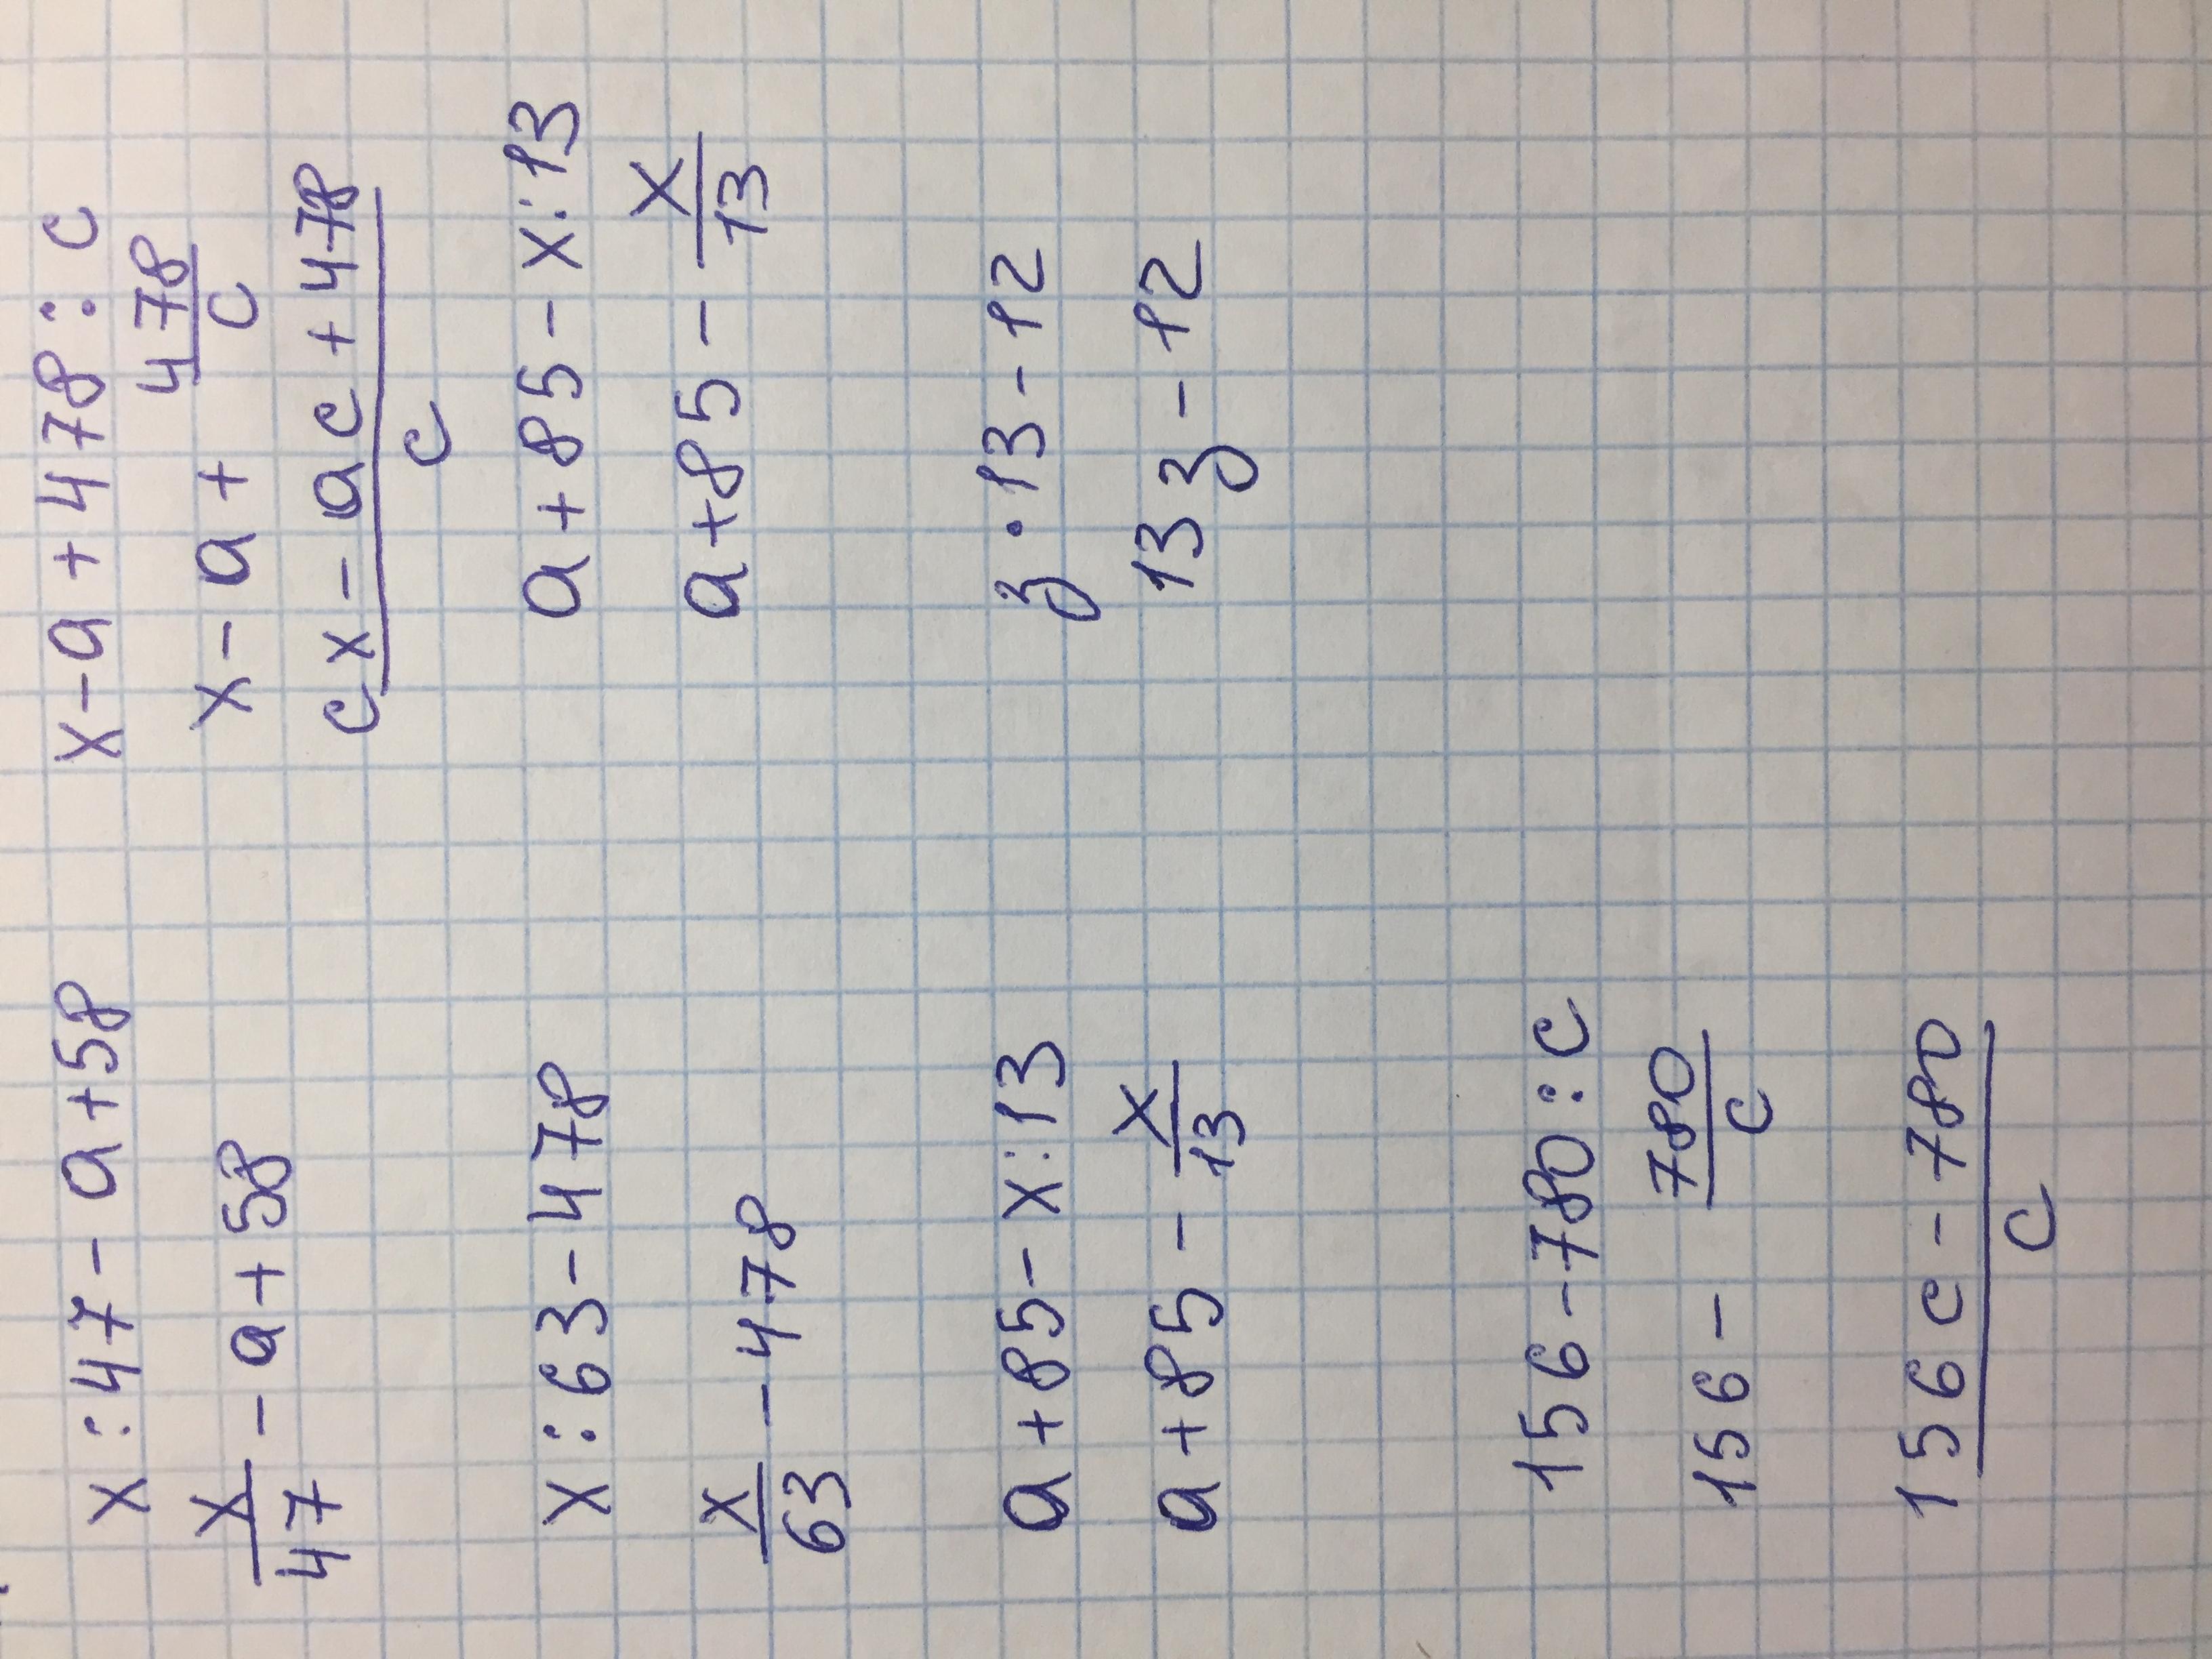 x : 47 - a + 58
x/47 - a + 58
x : 63 - 478
x/63 - 478
a + 85 - x : 13
a + 85 - x/13
156 - 780 : c
156 - 780/c
(156c - 780)/c
x - a + 478 : c
x - a + 478/c
(cx - ac + 478)/c
a + 85 - x : 13
a + 85 - x/13
z · 13 - 12
13z - 12